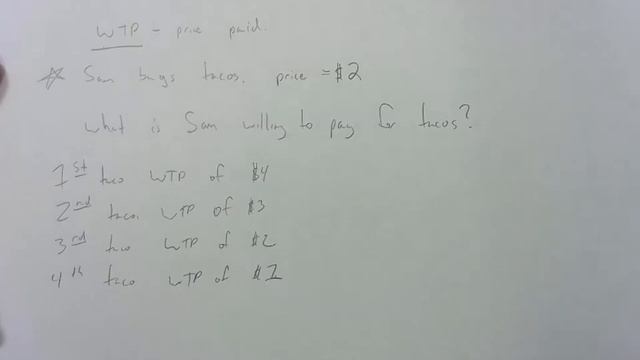 WTP - price paid.
☆ Sam buys tacos. price = $2
What is Sam willing to pay for tacos?
1st taco WTP of $4
2nd taco. WTP of $3
3rd taco WTP of $2
4th taco WTP of $1